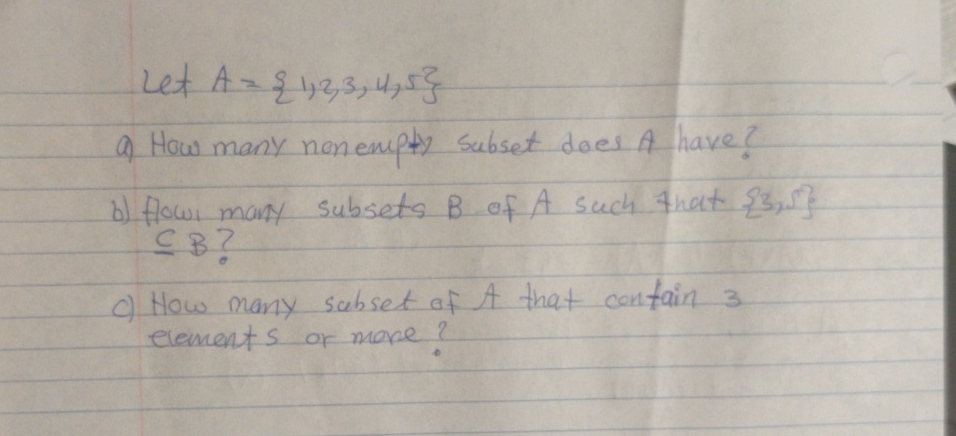 Let A = {1,2,3,4,5}
a) How many nonempty subset does A have?
b) How many subsets B of A such that {3,5}
⊆ B?
c) How many subset of A that contain 3
elements or more?